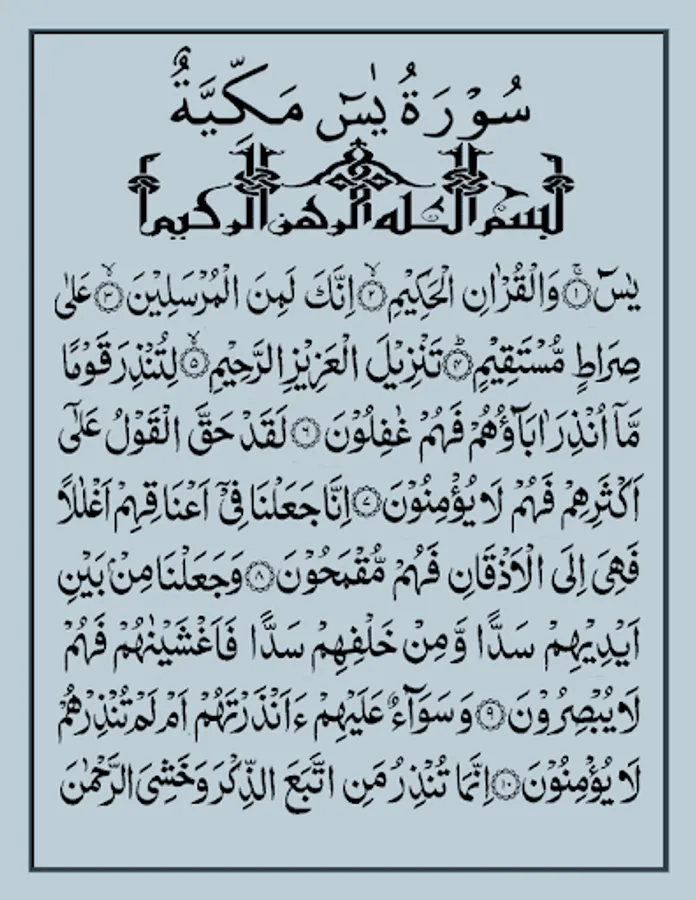 سُوْرَةُ يٰسٓ مَكِّيَّةٌ
بسم الله الرحمن الرحيم
يٰسٓ ۚ﴿۱﴾ وَالْقُرْاٰنِ الْحَكِيْمِ ۙ﴿۲﴾ اِنَّكَ لَمِنَ الْمُرْسَلِيْنَ ۙ﴿۳﴾ عَلٰى
صِرَاطٍ مُّسْتَقِيْمٍ ؕ﴿۴﴾ تَنْزِيْلَ الْعَزِيْزِ الرَّحِيْمِ ۙ﴿۵﴾ لِتُنْذِرَ قَوْمًا
مَّاۤ اُنْذِرَ اٰبَآؤُهُمْ فَهُمْ غٰفِلُوْنَ ﴿۶﴾ لَقَدْ حَقَّ الْقَوْلُ عَلٰٓى
اَكْثَرِهِمْ فَهُمْ لَا يُؤْمِنُوْنَ ﴿۷﴾ اِنَّا جَعَلْنَا فِيْۤ اَعْنَاقِهِمْ اَغْلٰلًا
فَهِىَ اِلَى الْاَذْقَانِ فَهُمْ مُّقْمَحُوْنَ ﴿۸﴾ وَجَعَلْنَا مِنْۢ بَيْنِ
اَيْدِيْهِمْ سَدًّا وَّمِنْ خَلْفِهِمْ سَدًّا فَاَغْشَيْنٰهُمْ فَهُمْ
لَا يُبْصِرُوْنَ ﴿۹﴾ وَسَوَآءٌ عَلَيْهِمْ ءَاَنْذَرْتَهُمْ اَمْ لَمْ تُنْذِرْهُمْ
لَا يُؤْمِنُوْنَ ﴿۱۰﴾ اِنَّمَا تُنْذِرُ مَنِ اتَّبَعَ الذِّكْرَ وَخَشِىَ الرَّحْمٰنَ